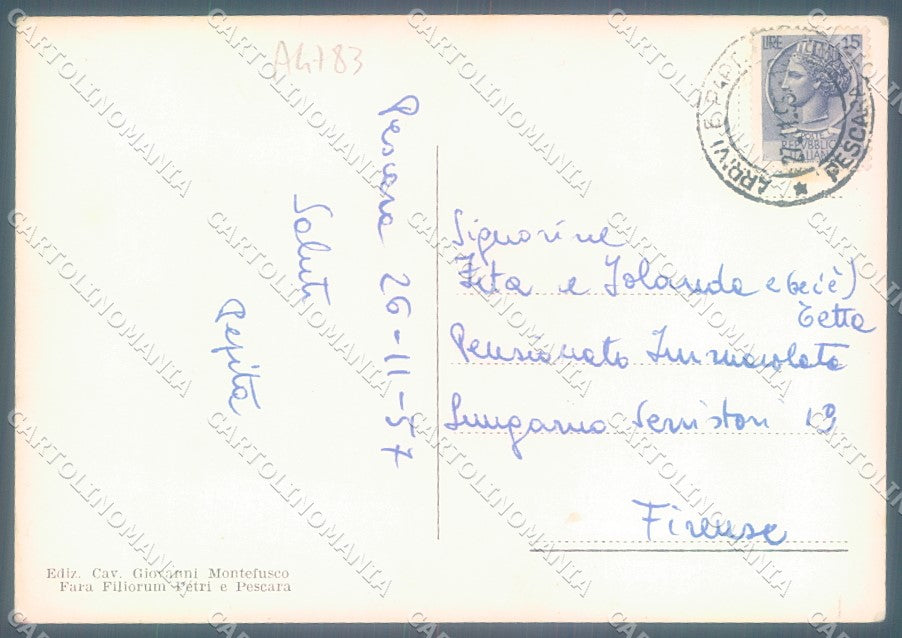 A4783
Pescara 26-11-57
Saluti
Pepita
LIRE 15
REPUBBLICA
ITALIANA
ARRIVI E PARTENZE
PESCARA
Signorine
Zita e Iolanda e (se c'è)
Tetta
Pensionato Immacolata
Lungarno Serristori 19
Firenze
Ediz. Cav. Giovanni Montefusco
Fara Filiorum Petri e Pescara
CARTOLINOMANIA